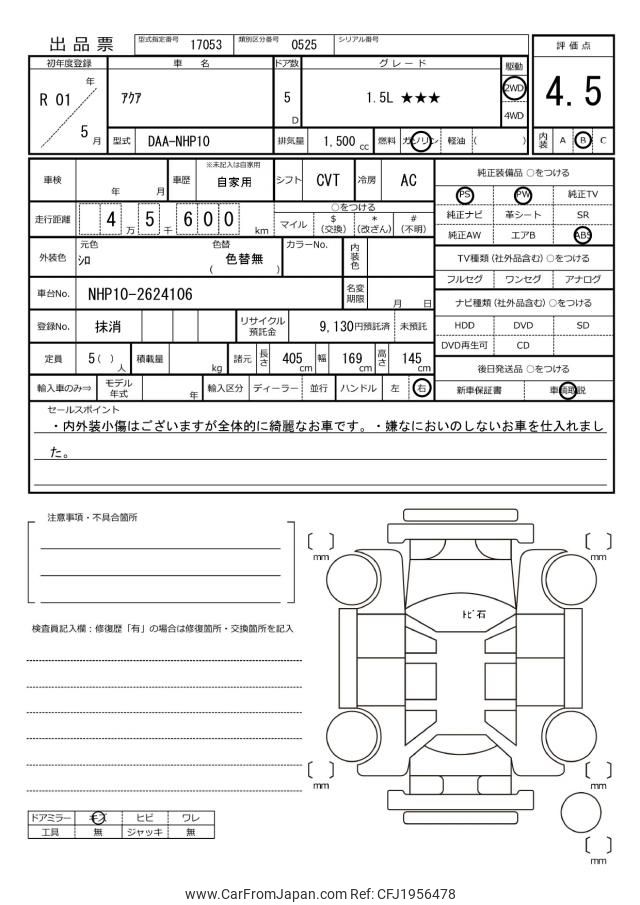 出品票 型式指定番号 17053 類別区分番号 0525 シリアル番号
評価点
4.5
内装 A B C
初年度登録 車名 ドア数 グレード 駆動
R 01 年 5 月
アクア
5 D
1.5L ★★★
2WD
4WD
型式 DAA-NHP10 排気量 1,500 cc 燃料 ガソリン 軽油 ( )
車検 年 月 車歴 ※未記入は自家用 自家用 シフト CVT 冷房 AC
走行距離 4 万 5 千 6 0 0 km
○をつける
マイル $(交換) *(改ざん) #(不明)
外装色 元色 シロ 色替 ( 色替無 ) カラーNo. 内装色
車台No. NHP10-2624106 名変期限 月 日
登録No. 抹消 リサイクル預託金 9,130円預託済 未預託
定員 5( )人 積載量 kg 諸元 長さ 405 cm 幅 169 cm 高さ 145 cm
輸入車のみ⇒ モデル年式 年 輸入区分 ディーラー 並行 ハンドル 左 右
純正装備品 ○をつける
PS PW 純正TV
純正ナビ 革シート SR
純正AW エアB ABS
TV種類(社外品含む)○をつける
フルセグ ワンセグ アナログ
ナビ種類(社外品含む)○をつける
HDD DVD SD
DVD再生可 CD
後日発送品 ○をつける
新車保証書 車輌取説
セールスポイント
・内外装小傷はございますが全体的に綺麗なお車です。・嫌なにおいのしないお車を仕入れまし
た。
注意事項・不具合箇所
検査員記入欄：修復歴「有」の場合は修復箇所・交換箇所を記入
[ ] mm
[ ] mm
トビ石
[ ] mm
[ ] mm
[ ] mm
ドアミラー キズ ヒビ ワレ
工具 無 ジャッキ 無
www.CarFromJapan.com Ref: CFJ1956478